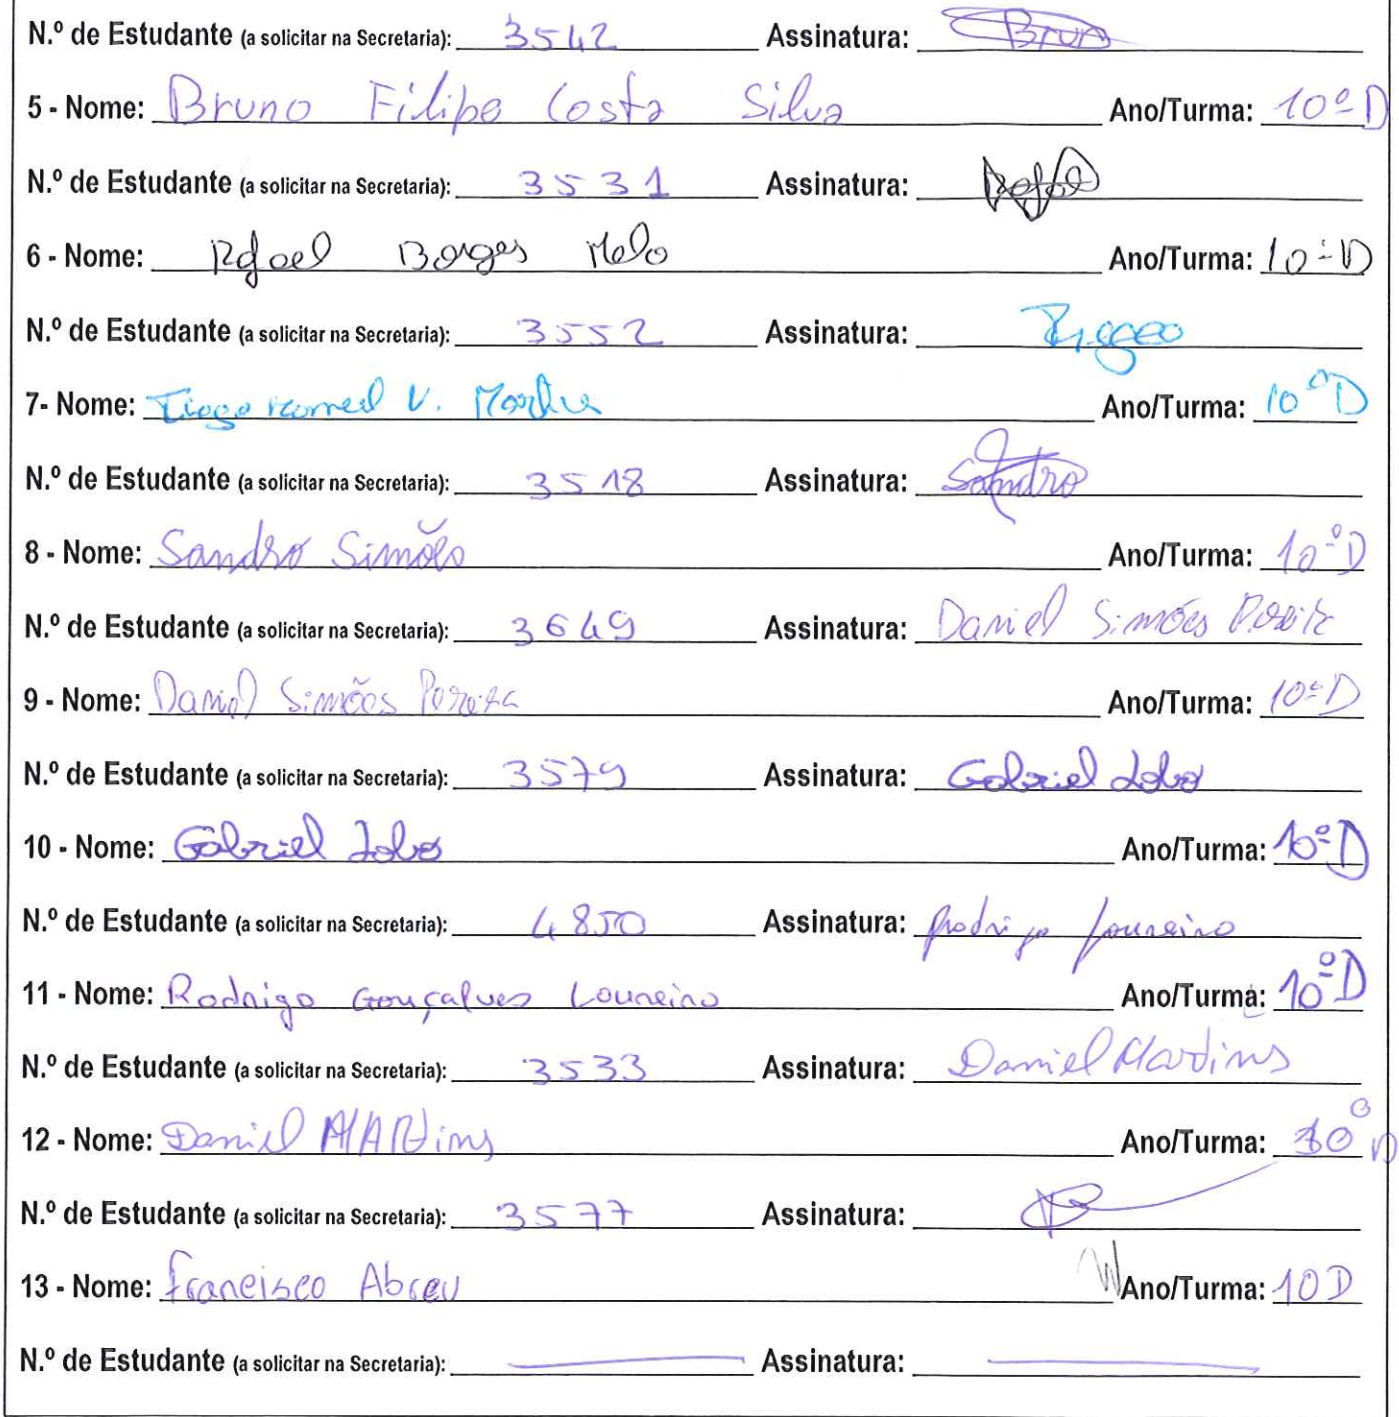 N.º de Estudante (a solicitar na Secretaria): 3542 Assinatura: Bruno
5 - Nome: Bruno Filipe Costa Silva Ano/Turma: 10º D
N.º de Estudante (a solicitar na Secretaria): 3531 Assinatura: Rafael
6 - Nome: Rafael Borges Melo Ano/Turma: 10º D
N.º de Estudante (a solicitar na Secretaria): 3552 Assinatura:
7- Nome: Tiago V. Martins Ano/Turma: 10º D
N.º de Estudante (a solicitar na Secretaria): 3518 Assinatura: Sandro
8 - Nome: Sandro Simões Ano/Turma: 10º D
N.º de Estudante (a solicitar na Secretaria): 3649 Assinatura: Daniel Simões Pereira
9 - Nome: Daniel Simões Pereira Ano/Turma: 10º D
N.º de Estudante (a solicitar na Secretaria): 3579 Assinatura: Gabriel Lobo
10 - Nome: Gabriel Lobo Ano/Turma: 10º D
N.º de Estudante (a solicitar na Secretaria): 4850 Assinatura: Rodrigo Loureiro
11 - Nome: Rodrigo Gonçalves Loureiro Ano/Turma: 10º D
N.º de Estudante (a solicitar na Secretaria): 3533 Assinatura: Daniel Martins
12 - Nome: Daniel MARtins Ano/Turma: 10º D
N.º de Estudante (a solicitar na Secretaria): 3577 Assinatura:
13 - Nome: Francisco Abreu Ano/Turma: 10 D
N.º de Estudante (a solicitar na Secretaria): Assinatura: